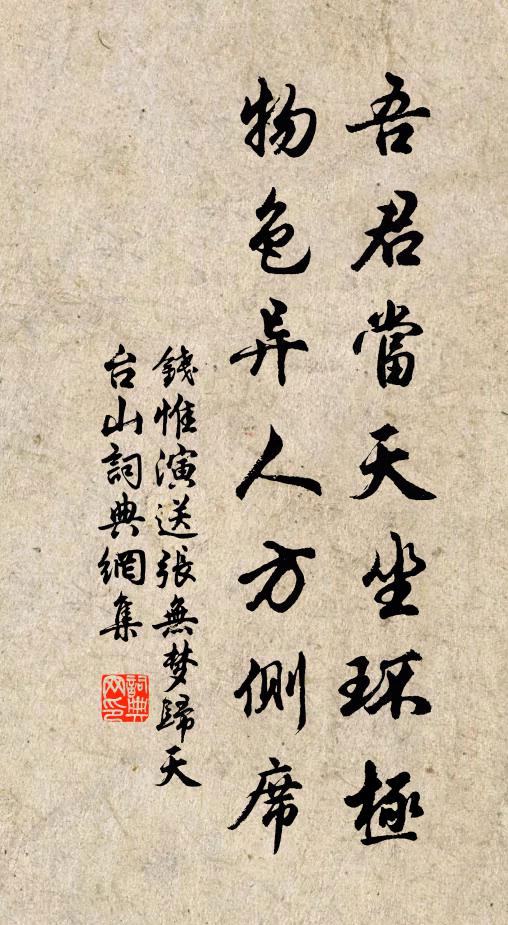 吾君當天坐环極
物色异人方側席
錢惟演送張無梦歸天
台山詞典網集
詞典
网印